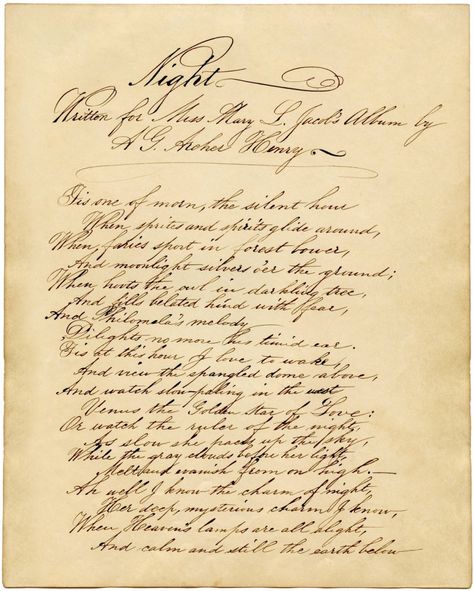 Night
Written for Miss Mary L. Jacob's Album by
A G. Archer Henry.
Tis one of morn, the silent hour
When, sprites and spirits glide around,
When, faries sport in forest bower,
And moonlight silvers o'er the ground;
When hoots the owl in darkling tree,
And fills belated hind with fear,
And Philomela's melody
Dilights, no more his timid ear.
Tis at this hour I love to wake,
And view the spangled dome above,
And watch slow-paling in the west
Venus the Golden Star of Love:
Or watch the ruler of the night,
As slow she paces up the sky,
While the gray clouds before her light
Melt and evanish from on high.—
Ah well I know the charm of night,
Her deep, mysterious charm I know,
When Heaven's lamps are all alight,
And calm and still the earth below